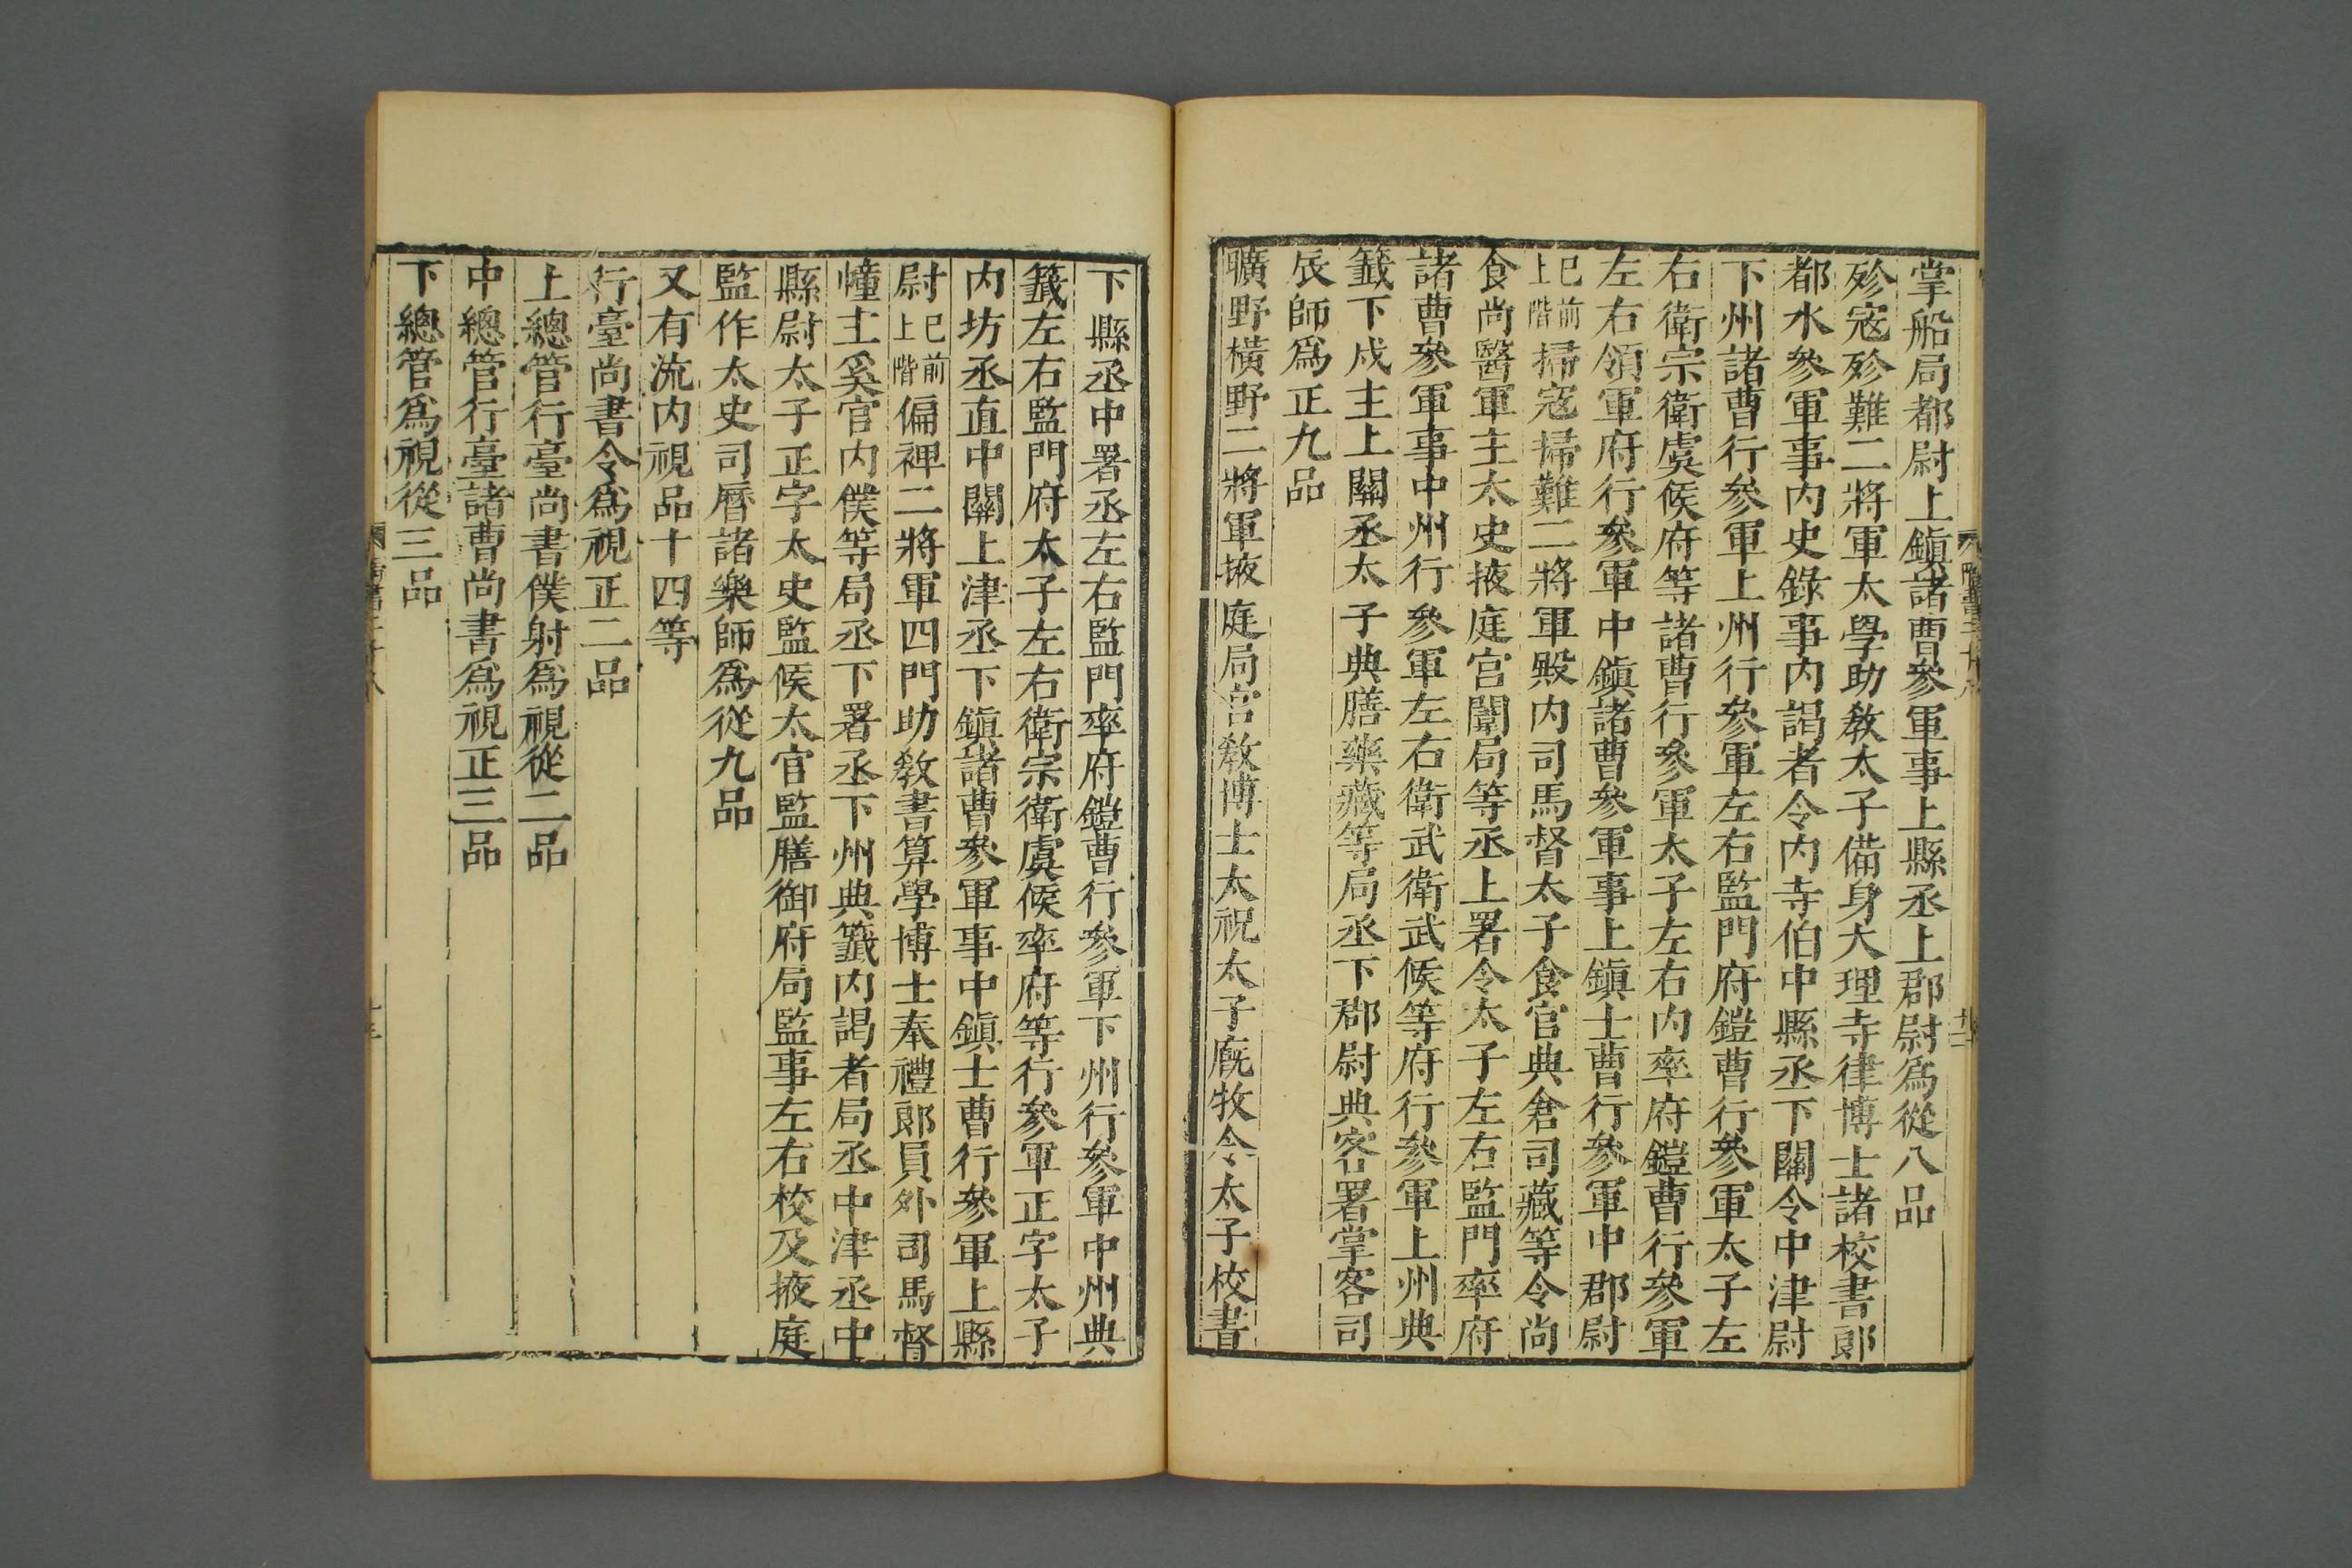 掌船局都尉上鎮諸曹參軍事上縣丞上郡尉爲從八品
殄寇殄難二將軍太學助敎太子備身大理寺律博士諸校書郎
都水參軍事内史錄事内謁者令内寺伯中縣丞下關令中津尉
下州諸曹行參軍上州行參軍左右監門府鎧曹行參軍太子左
右衛宗衛虞候府等諸曹行參軍太子左右内率府鎧曹行參軍
左右領軍府行參軍中鎮諸曹參軍事上鎮士曹行參軍中郡尉
已前上階掃寇掃難二將軍殿内司馬督太子食官典倉司藏等令尚
食尚醫軍主太史掖庭宫闈局等丞上署令太子左右監門率府
諸曹參軍事中州行參軍左右衛武衛武候等府行參軍上州典
籤下戍主上關丞太子典膳藥藏等局丞下郡尉典客署掌客司
辰師爲正九品
曠野橫野二將軍掖庭局宫敎博士太祝太子廐牧令太子校書
下縣丞中署丞左右監門率府鎧曹行參軍下州行參軍中州典
籤左右監門府太子左右衛宗衛虞候率府等行參軍正字太子
内坊丞直中關上津丞下鎮諸曹參軍事中鎮士曹行參軍上縣
尉已前上階偏裨二將軍四門助敎書算學博士奉禮郎員外司馬督
幢主奚官内僕等局丞下署丞下州典籤内謁者局丞中津丞中
縣尉太子正字太史監候太官監膳御府局監事左右校及掖庭
監作太史司曆諸樂師爲從九品
又有流内視品十四等
行臺尚書令爲視正二品
上總管行臺尚書僕射爲視從二品
中總管行臺諸曹尚書爲視正三品
下總管爲視從三品